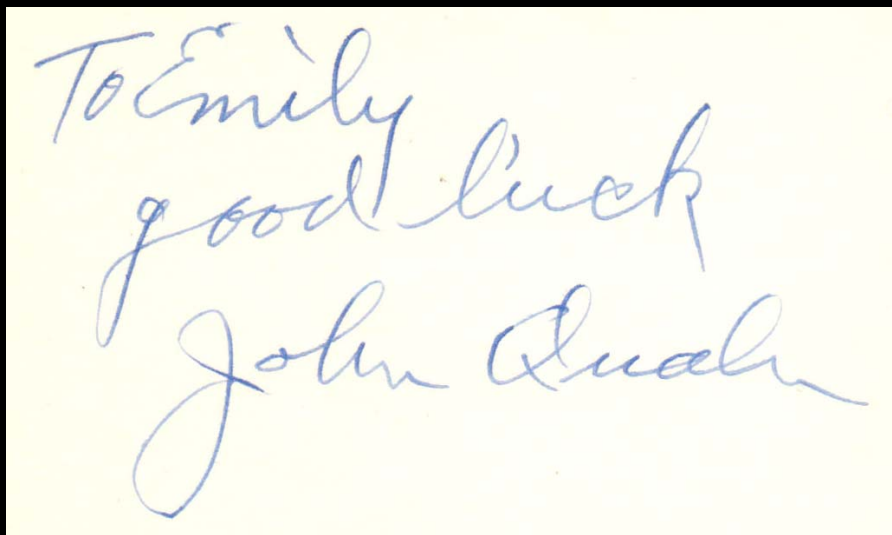 To Emily
good luck
John Qualen